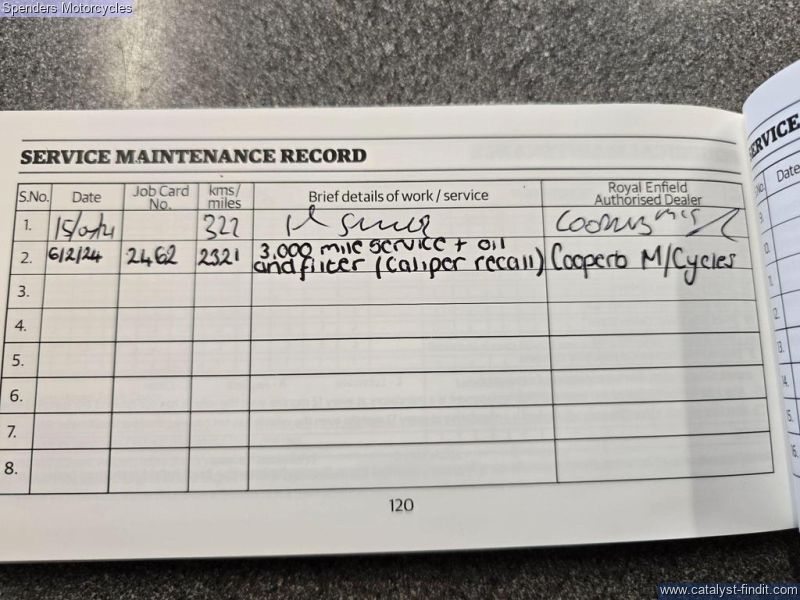 Spenders Motorcycles
SERVICE MAINTENANCE RECORD
S.No. Date Job Card No. kms/ miles Brief details of work / service Royal Enfield Authorised Dealer
1. 322
2. 6/2/24 2462 2321 3,000 mile service + oil and filter (Caliper recall) Cooperb M/Cycles
3.
4.
5.
6.
7.
8.
120
SERVICE
Date
www.catalyst-findit.com